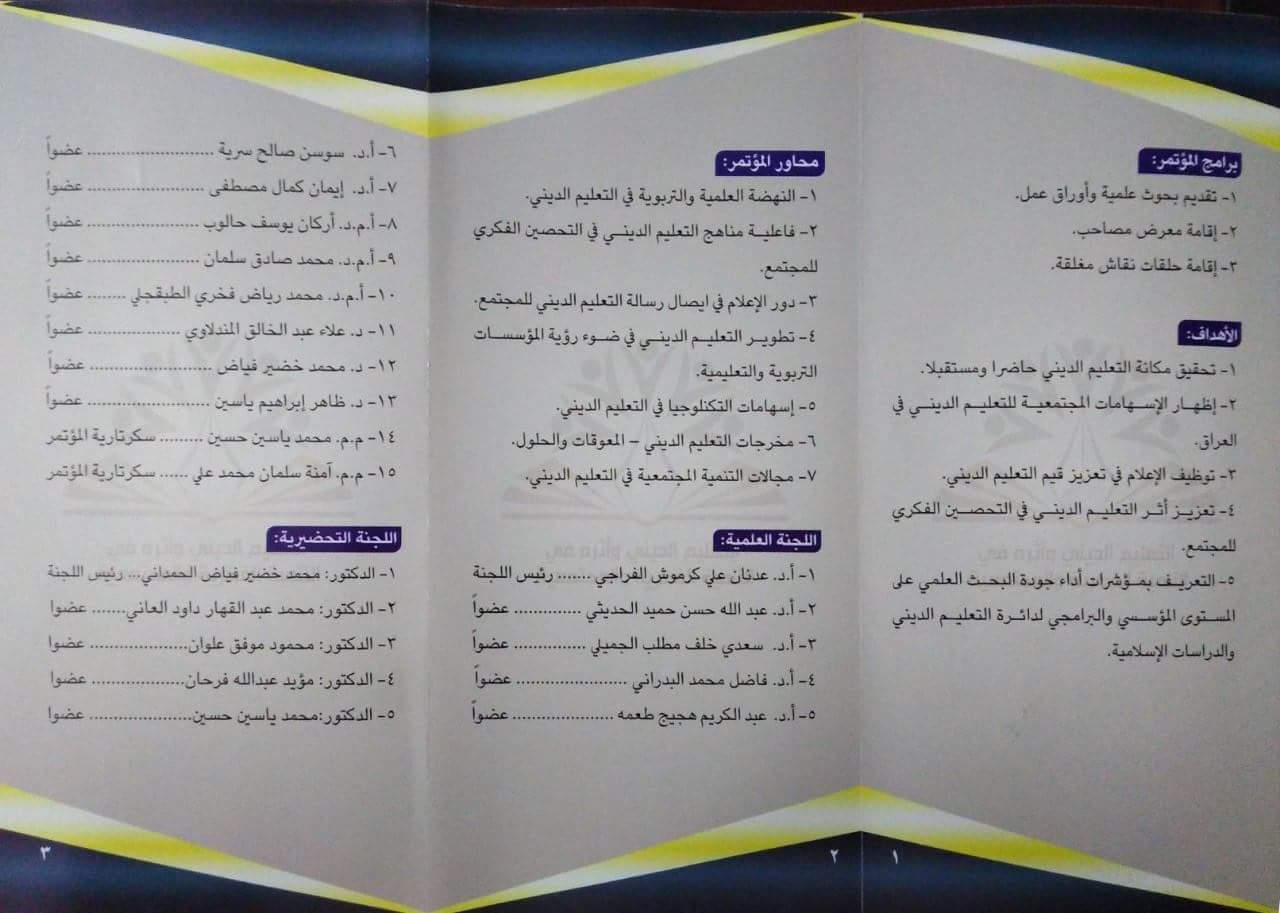 برامج المؤتمر:
١- تقديم بحوث علمية وأوراق عمل.
٢- إقامة معرض مصاحب.
٣- إقامة حلقات نقاش مغلقة.
الأهداف:
١- تحقيق مكانة التعليم الديني حاضرا ومستقبلا.
٢- إظهار الإسهامات المجتمعية للتعليم الديني في
العراق.
٣- توظيف الإعلام في تعزيز قيم التعليم الديني.
٤- تعزيز أثر التعليم الديني في التحصين الفكري
للمجتمع.
٥- التعريف بمؤشرات أداء جودة البحث العلمي على
المستوى المؤسسي والبرامجي لدائرة التعليم الديني
والدراسات الإسلامية.
١
محاور المؤتمر:
١- النهضة العلمية والتربوية في التعليم الديني.
٢- فاعلية مناهج التعليم الديني في التحصين الفكري
للمجتمع.
٣- دور الإعلام في ايصال رسالة التعليم الديني للمجتمع.
٤- تطوير التعليم الديني في ضوء رؤية المؤسسات
التربوية والتعليمية.
٥- إسهامات التكنلوجيا في التعليم الديني.
٦- مخرجات التعليم الديني – المعوقات والحلول.
٧- مجالات التنمية المجتمعية في التعليم الديني.
اللجنة العلمية:
١- أ.د. عدنان علي كرموش الفراجي ....... رئيس اللجنة
٢- أ.د. عبد الله حسن حميد الحديثي .............. عضواً
٣- أ.د. سعدي خلف مطلب الجميلي ............... عضواً
٤- أ.د. فاضل محمد البدراني ....................... عضواً
٥- أ.د. عبد الكريم هجيج طعمه .................... عضواً
٢
٦- أ.د. سوسن صالح سرية ......................... عضواً
٧- أ.د. إيمان كمال مصطفى ....................... عضواً
٨- أ.م.د. أركان يوسف حالوب ...................... عضواً
٩- أ.م.د. محمد صادق سلمان ...................... عضواً
١٠- أ.م.د. محمد رياض فخري الطبقجلي ........ عضواً
١١- د. علاء عبد الخالق المندلاوي .................. عضواً
١٢- د. محمد خضير فياض ........................ عضواً
١٣- د. ظاهر إبراهيم ياسين ........................ عضواً
١٤- م.م. محمد ياسين حسين ......... سكرتارية المؤتمر
١٥- م.م. آمنة سلمان محمد علي ...... سكرتارية المؤتمر
اللجنة التحضيرية:
١- الدكتور: محمد خضير فياض الحمداني... رئيس اللجنة
٢- الدكتور: محمد عبد القهار داود العاني....... عضوا
٣- الدكتور: محمود موفق علوان................... عضوا
٤- الدكتور: مؤيد عبدالله فرحان................... عضوا
٥- الدكتور:محمد ياسين حسين.................... عضوا
٣